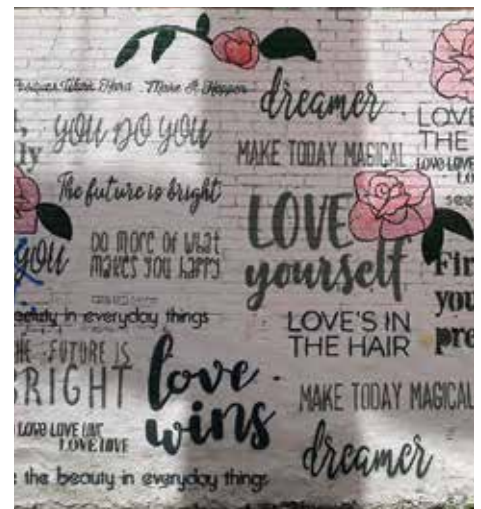 Make It Happen
dreamer
YOU DO YOU
ly
MAKE TODAY MAGICAL
LOVE
THE
LOVE LOVE
The future is bright
LOVE
yourself
see
you
DO MORE OF WHAT
MAKES YOU HAPPY
Fir
you
pre
beauty in everyday things
LOVE'S IN
THE HAIR
THE FUTURE IS
BRIGHT
love
wins
MAKE TODAY MAGICAL
LOVE LOVE LOVE
LOVE LOVE
dreamer
the beauty in everyday things